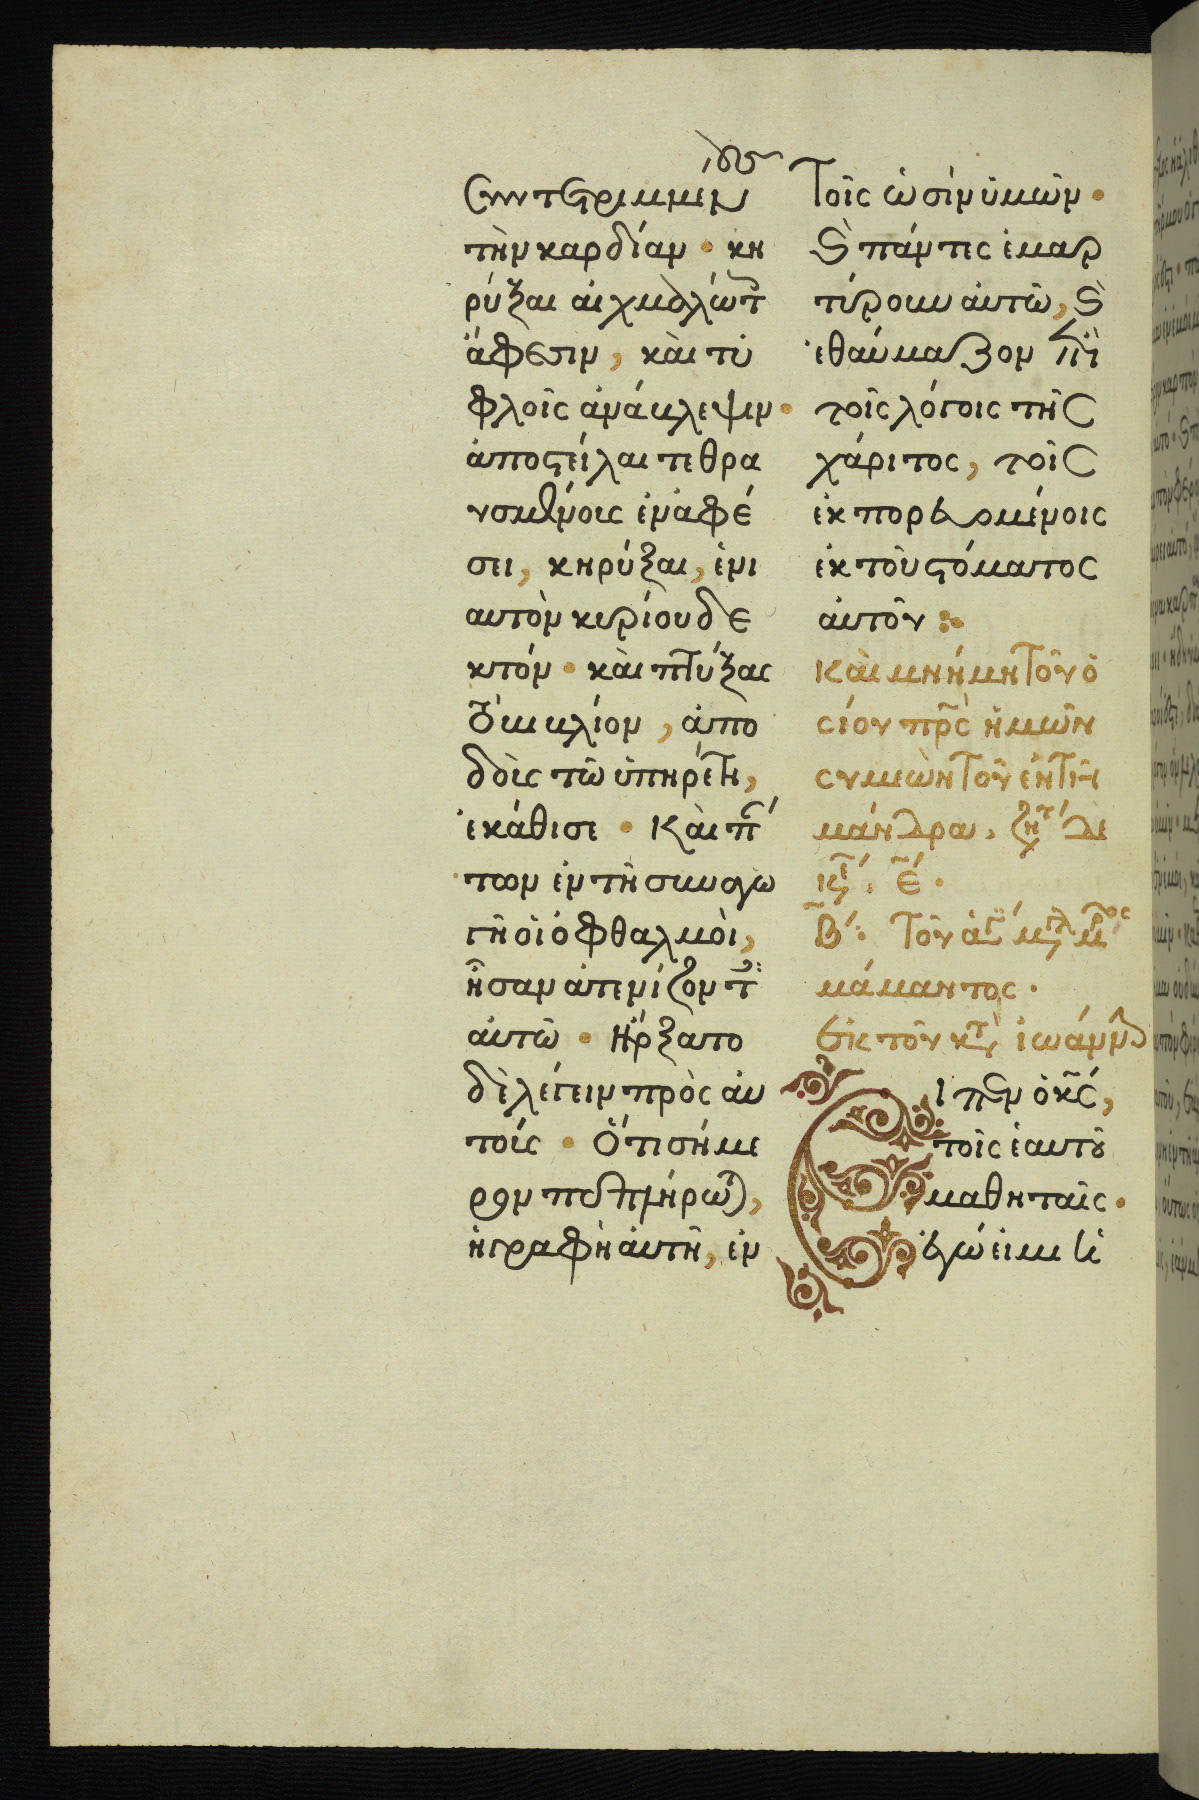 συντετριμμένους
τὴν καρδίαν · κη
ρύξαι αἰχμαλώτ
ἄφεσιν, καὶ τυ
φλοῖς ἀνάβλεψιν ·
ἀποστεῖλαι τεθρα
υσμένοις ἐν ἀφέ
σει, κηρύξαι, ἐνι
αυτὸν κυρίου δε
κτόν · καὶ πτύξας
τὸ βιβλίον, ἀπο
δοὺς τῶ ὑπηρέτη,
ἐκάθισε · Καὶ π
των ἐν τῆ συναγω
γῆ οἱ ὀφθαλμοὶ,
ἦσαν ἀτενίζοντ
αὐτῶ · Ἤρξατο
δὲ λέγειν πρὸς αὐ
τούς · Ὅτι σήμε
ρον πεπλήρωται,
ἡ γραφὴ αὐτὴ, ἐν
τοῖς ὠσὶν ὑμῶν ·
καὶ πάντες ἐμαρ
τύρουν αὐτῶ, καὶ
ἐθαύμαζον ἐπὶ
τοῖς λόγοις τῆς
χάριτος, τοῖς
ἐκπορευομένοις
ἐκ τοῦ στόματος
αὐτοῦ :·
Καὶ μνήμη τοῦ ὁ
σίου πρς ἡμῶν
συμεὼν τοῦ ἐν τῆ
μάνδρα. ζητ δε
Β΄: Τοῦ ἁγ μεγλ μρος
μάμαντος ·
Ἐκ τοῦ κτ ἰωάννου
Εἶπεν ὁ κς,
τοῖς ἑαυτοῦ
μαθηταῖς ·
ἐγώ εἰμι ἡ